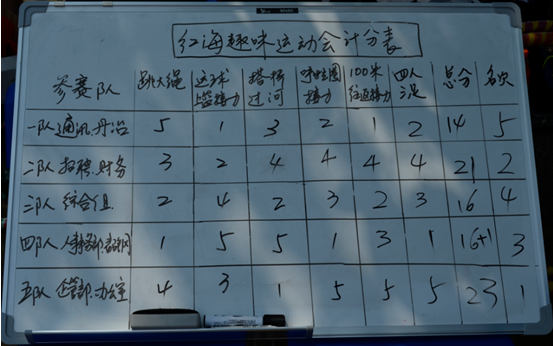 红海趣味运动会计分表
参赛队 跳大绳 运球上篮接力 搭桥过河 呼啦圈接力 100米往返接力 四人 总分 名次
一队 通讯、丹冶 5 1 3 2 1 2 14 5
二队 招聘、财务 3 2 4 4 4 4 21 2
三队 综合组 2 4 2 3 2 3 16 4
四队 人事部 1 5 5 1 3 1 16+1 3
五队 企管部、办公室 4 3 1 5 5 5 23 1